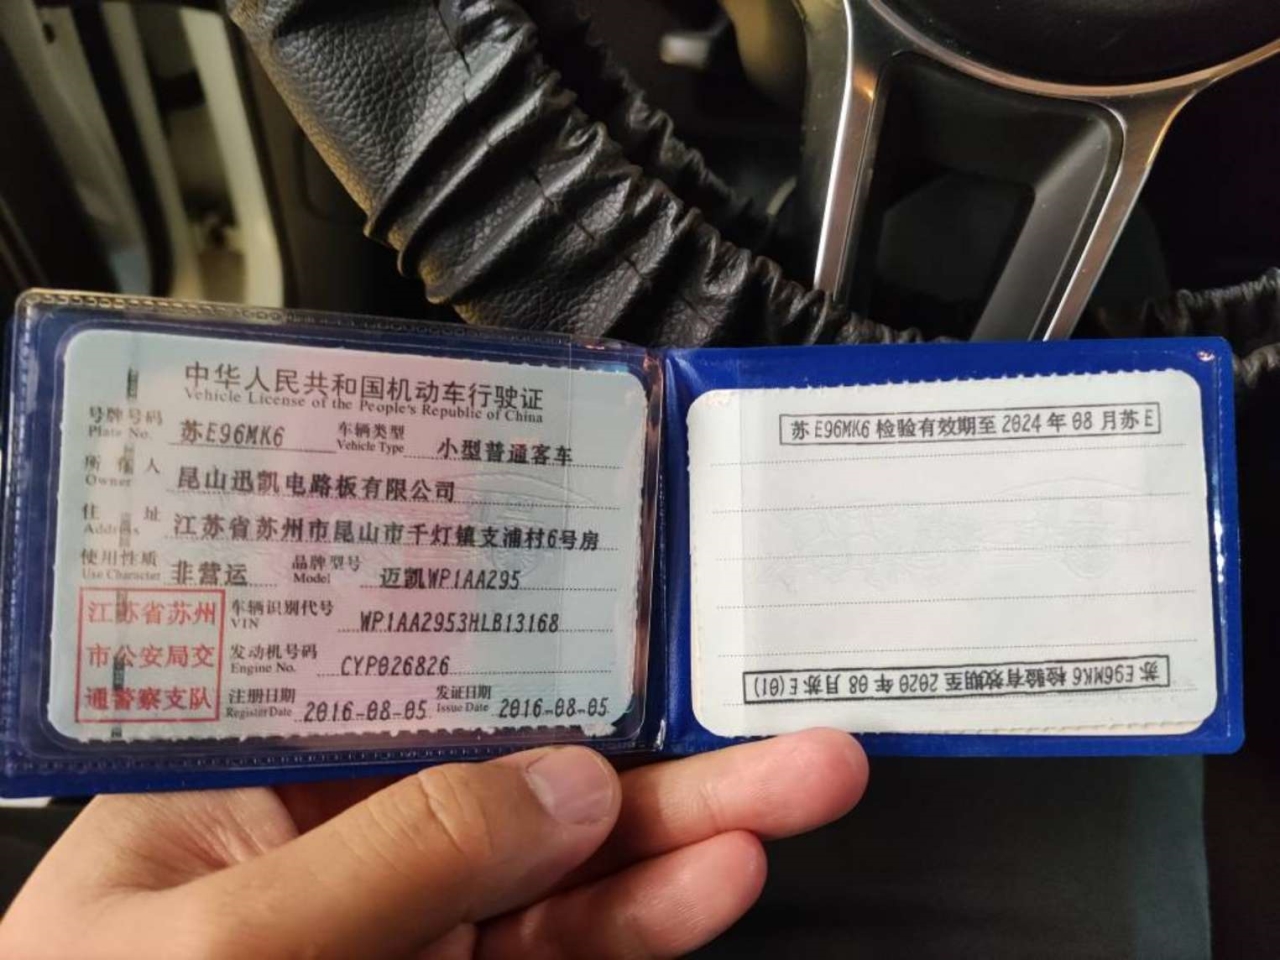 中华人民共和国机动车行驶证
Vehicle License of the People's Republic of China
号牌号码 苏E96MK6 车辆类型 小型普通客车
Plate No. Vehicle Type
所有人 昆山迅凯电路板有限公司
Owner
住址 江苏省苏州市昆山市千灯镇支浦村6号房
Address
使用性质 非营运 品牌型号 迈凯WP1AA295
Use Character Model
江苏省苏州
市公安局交
通警察支队
车辆识别代号 WP1AA2953HLB13168
VIN
发动机号码 CYP026826
Engine No.
注册日期 2016-08-05 发证日期 2016-08-05
Register Date Issue Date
苏E96MK6检验有效期至2024年08月苏E
苏E96MK6检验有效期至2020年08月苏E(01)